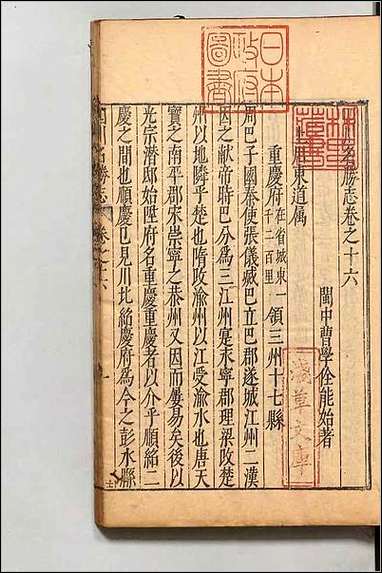 日本
政府
圖書
名勝志卷之十六
閩中曹學佺能始著
淺草文庫
川東道属
重慶府在省城東一千二百里領三州十七縣
周巴子國秦使張儀滅巴立巴郡遂城江州二漢
因之献帝時巴分爲三江州是永寧郡理梁改楚
州以地隣乎楚也隋改渝州以江受渝水也唐天
寶之南平郡宋崇寧之恭州又因而屢易矣後以
光宗潜邸始陞府名重慶重慶者以介乎順紹二
慶之間也順慶已見川北紹慶府爲今之彭水縣
川名勝志
卷之十六
一